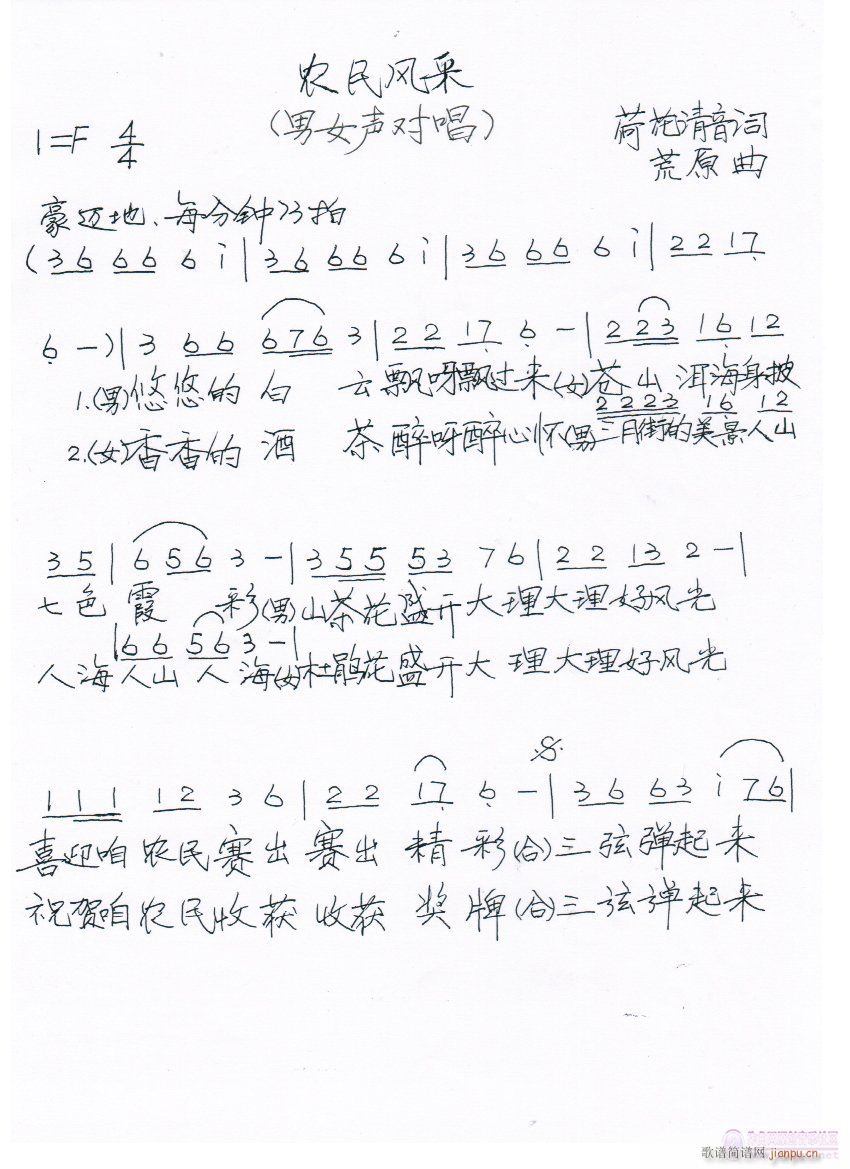 农民风采
(男女声对唱)
1=F 4/4
荷花清音词
荒原曲
豪迈地、每分钟73拍
(36 66 6 i|36 66 6 i|36 66 6 i|22 17
6 -)|3 66 676 3|22 17 6 -|2 223 16 12
1.(男)悠悠的白 云飘呀飘过来(女)苍山洱海身披
2223 16 12
2.(女)香香的酒 茶醉呀醉心怀(男)三月街的美景人山
35|6 56 3 -|3 55 53 76|22 13 2 -|
七色霞 彩(男)山茶花盛开大理大理好风光
|66 563 -|
人海人山人海(女)杜鹃花盛开大理大理好风光
111 12 36|22 17 6 -|36 63 i 76|
喜迎咱农民赛出赛出精彩(合)三弦弹起来
祝贺咱农民收获收获奖牌(合)三弦弹起来
歌谱简谱网 jianpu.cn